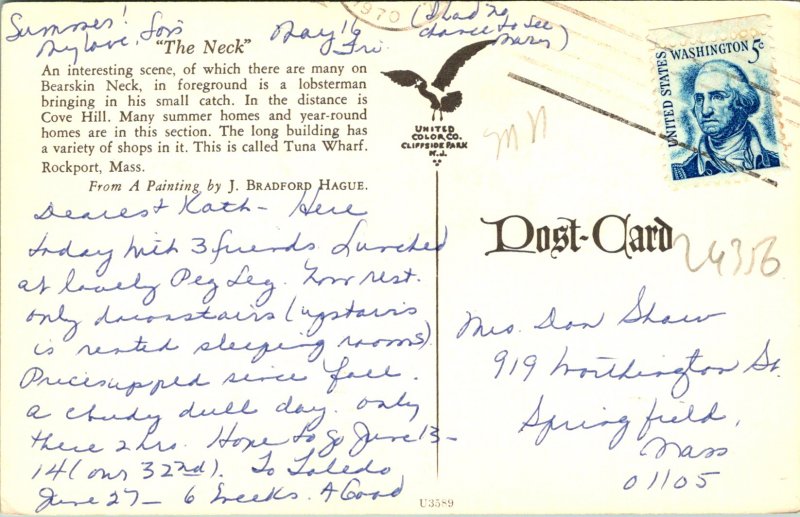 Summer!
My love, Lois
May 16
Fri.
(I had no
chance to see
Mary)
1970
"The Neck"
An interesting scene, of which there are many on
Bearskin Neck, in foreground is a lobsterman
bringing in his small catch. In the distance is
Cove Hill. Many summer homes and year-round
homes are in this section. The long building has
a variety of shops in it. This is called Tuna Wharf.
Rockport, Mass.
From A Painting by J. BRADFORD HAGUE.
UNITED
COLOR CO.
CLIFFSIDE PARK
N.J.
UNITED STATES
WASHINGTON 5c
Dearest Kath - Here
today with 3 friends. Lunched
at lovely Peg Leg. Now rest.
only downstairs (upstairs
is rented sleeping rooms).
Prices upped since fall.
A cloudy dull day. only
there 2 hrs. Hope to go June 13-
14 (our 32nd). To Toledo
June 27 - 6 weeks. A Good
Post-Card
26356
Mrs. Don Shaw
919 Worthington St.
Springfield,
Mass
01105
U3589